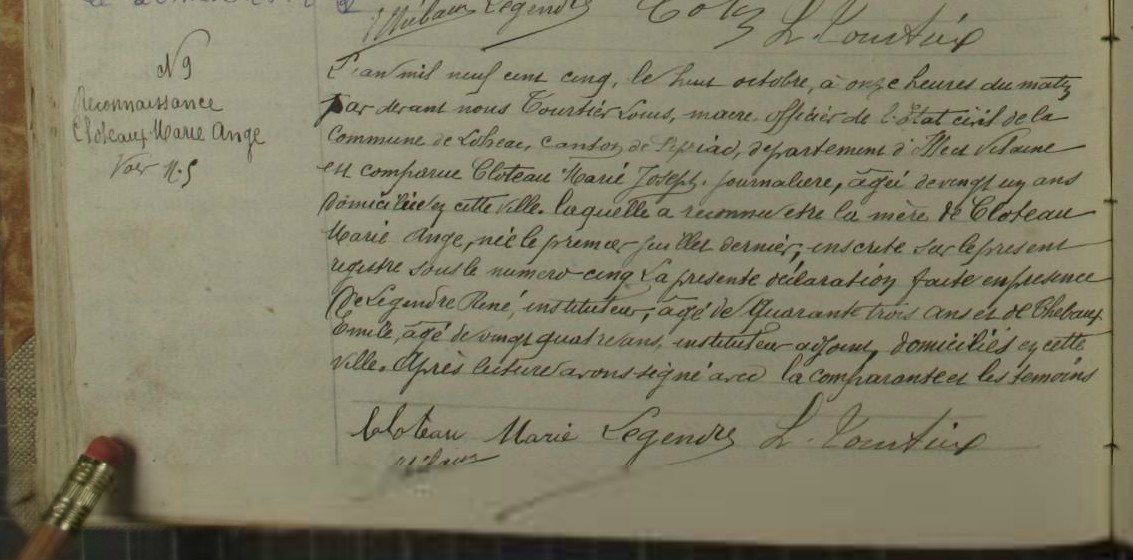 Legendre
L. Tourtier
N 9
Reconnaissance
Cloteaux Marie Ange
Voir N. 5
L'an mil neuf cent cinq, le huit octobre, à onze heures du matin
Par devant nous Tourtier Louis, maire officier de l'État civil de la
Commune de Loheac, canton de Pipriac, département d'Ille et Vilaine
est comparue Cloteau Marie Joseph. journalière, âgée de vingt un ans
Domiciliée en cette ville. laquelle a reconnu etre la mère de Cloteau
Marie Ange, née le premier juillet dernier, inscrite sur le present
registre sous le numero cinq La presente déclaration faite en presence
De Legendre René, instituteur, âgé de Quarante trois ans et de Thebaux
Emile, âgé de vingt quatre ans, instituteur adjoint, domiciliés en cette
ville. Après lecture avons signé avec la comparante et les témoins
Cloteau Marie Legendre L. Tourtier